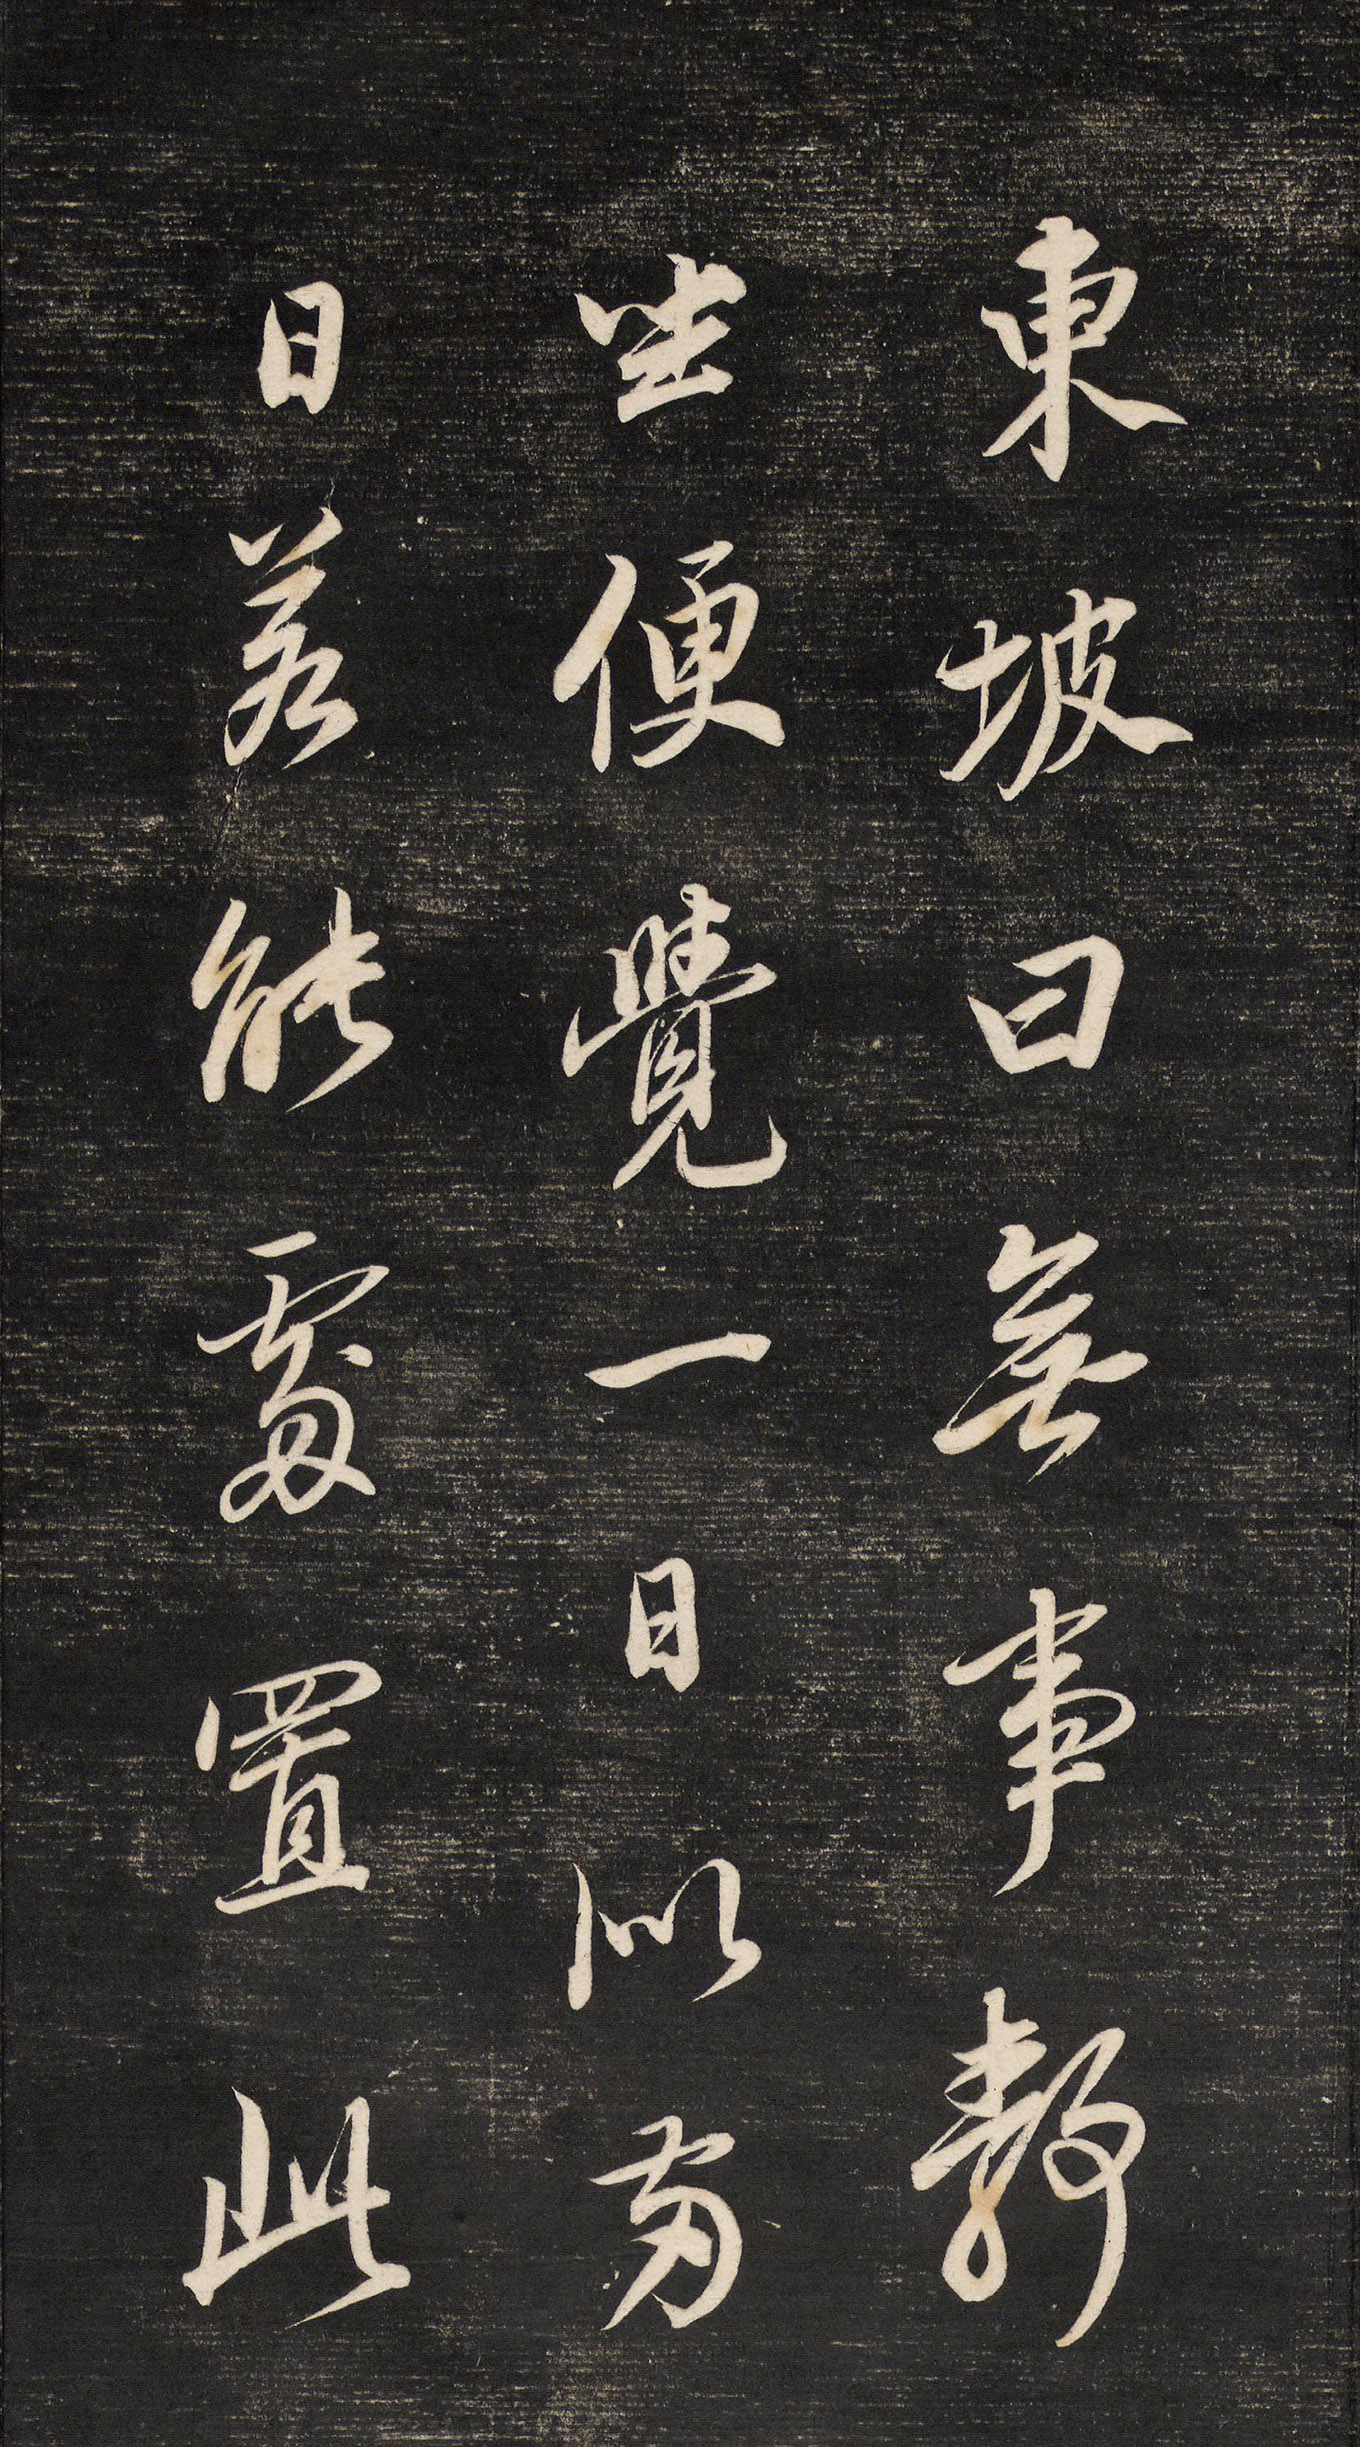 東坡曰無事静
坐便覺一日似兩
日若能處置此